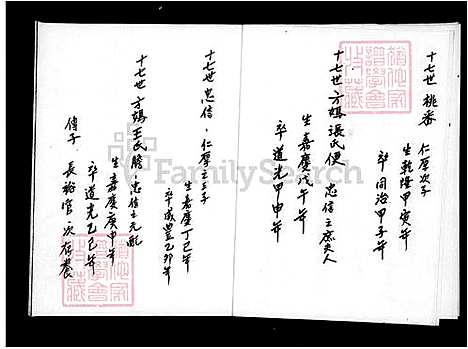 十七世 桃番
仁厚次子
生乾隆甲寅年
卒同治甲子年
十七世方媽張氏便 忠信之庶夫人
生嘉慶戊午年
卒道光甲申年
十七世忠信、仁厚之三子
生嘉慶丁巳年
卒咸豐乙卯年
十七世方媽王氏勝 忠信之元配
生嘉慶庚申年
卒道光乙巳年
傳子 長裕官 次
FamilySearch